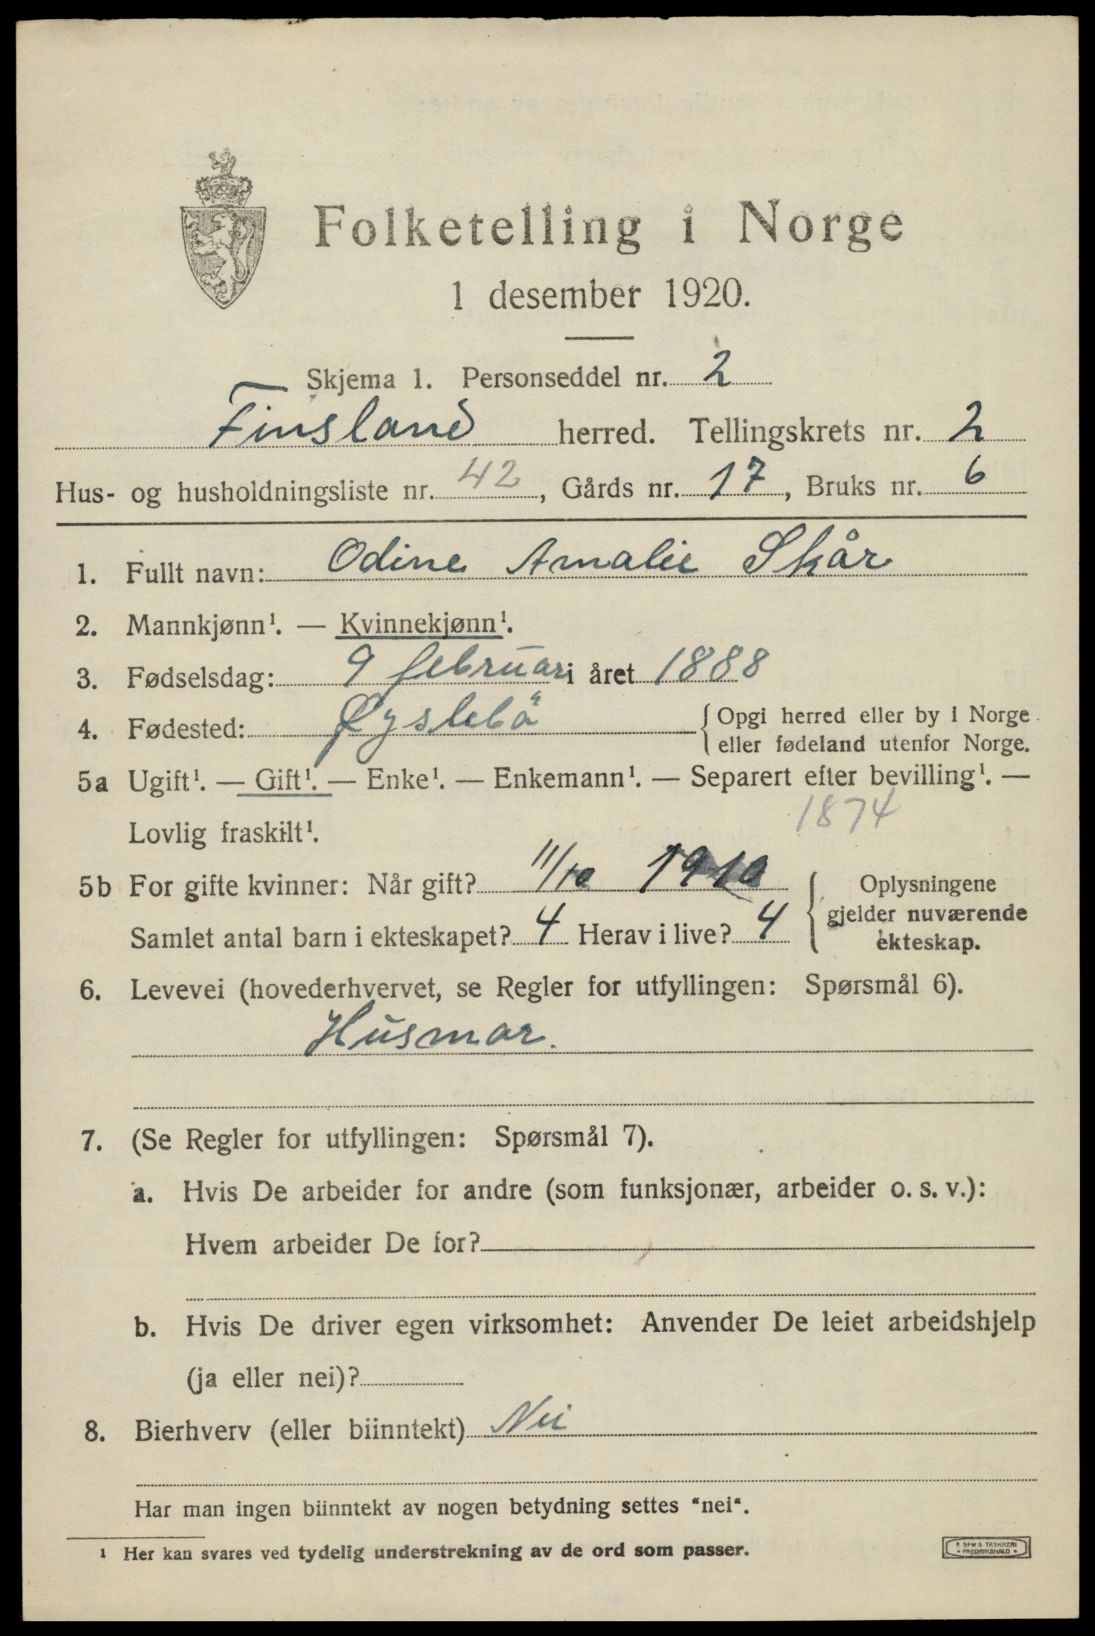 Folketelling i Norge
1 desember 1920.
Skjema 1. Personseddel nr. 2
Finsland herred. Tellingskrets nr. 2
Hus- og husholdningsliste nr. 42, Gårds nr. 17, Bruks nr. 6
1. Fullt navn: Odine Amalie Skår
2. Mannkjønn¹. — Kvinnekjønn¹.
3. Fødselsdag: 9 februar i året 1888
4. Fødested: Øyslebö {Opgi herred eller by i Norge
eller fødeland utenfor Norge.
5a Ugift¹. — Gift¹. — Enke¹. — Enkemann¹. — Separert efter bevilling¹. —
Lovlig fraskilt¹. 1874
5b For gifte kvinner: Når gift? 11/10 1910 { Oplysningene
gjelder nuværende
Samlet antal barn i ekteskapet? 4 Herav i live? 4 ekteskap.
6. Levevei (hovederhvervet, se Regler for utfyllingen: Spørsmål 6).
Husmor.
7. (Se Regler for utfyllingen: Spørsmål 7).
a. Hvis De arbeider for andre (som funksjonær, arbeider o. s. v.):
Hvem arbeider De for?
b. Hvis De driver egen virksomhet: Anvender De leiet arbeidshjelp
(ja eller nei)?
8. Bierhverv (eller biinntekt) Nei
Har man ingen biinntekt av nogen betydning settes "nei".
¹ Her kan svares ved tydelig understrekning av de ord som passer.